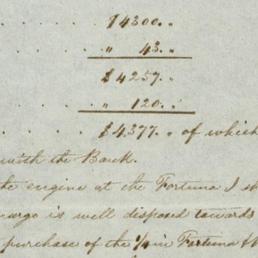 $4300.
" 43.
$4257.
" 120.
$4377. of which
with the Bank.
the engine at the Fortuna I
is well disposed towards
purchase of the in Fortuna